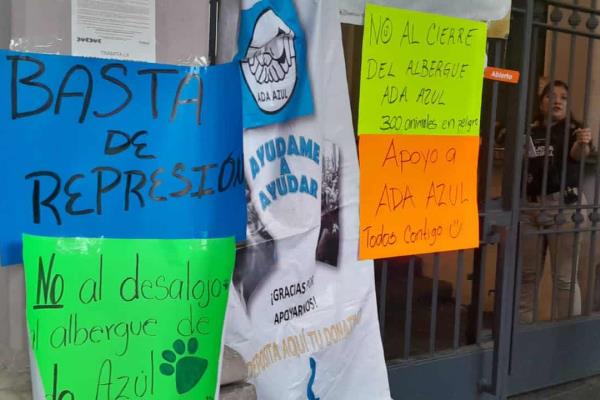 BASTA
DE
REPRESIÓN
No al desalojo
al albergue de
Azúl
ADA AZUL
AYUDAME
A
AYUDAR
¡GRACIAS POR
APOYARNOS!
DEPOSITA AQUÍ TU
NO AL CIERRE
DEL ALBERGUE
ADA AZUL
300 animales en peligro
Apoyo a
ADA AZUL
Todos Contigo
Abierto